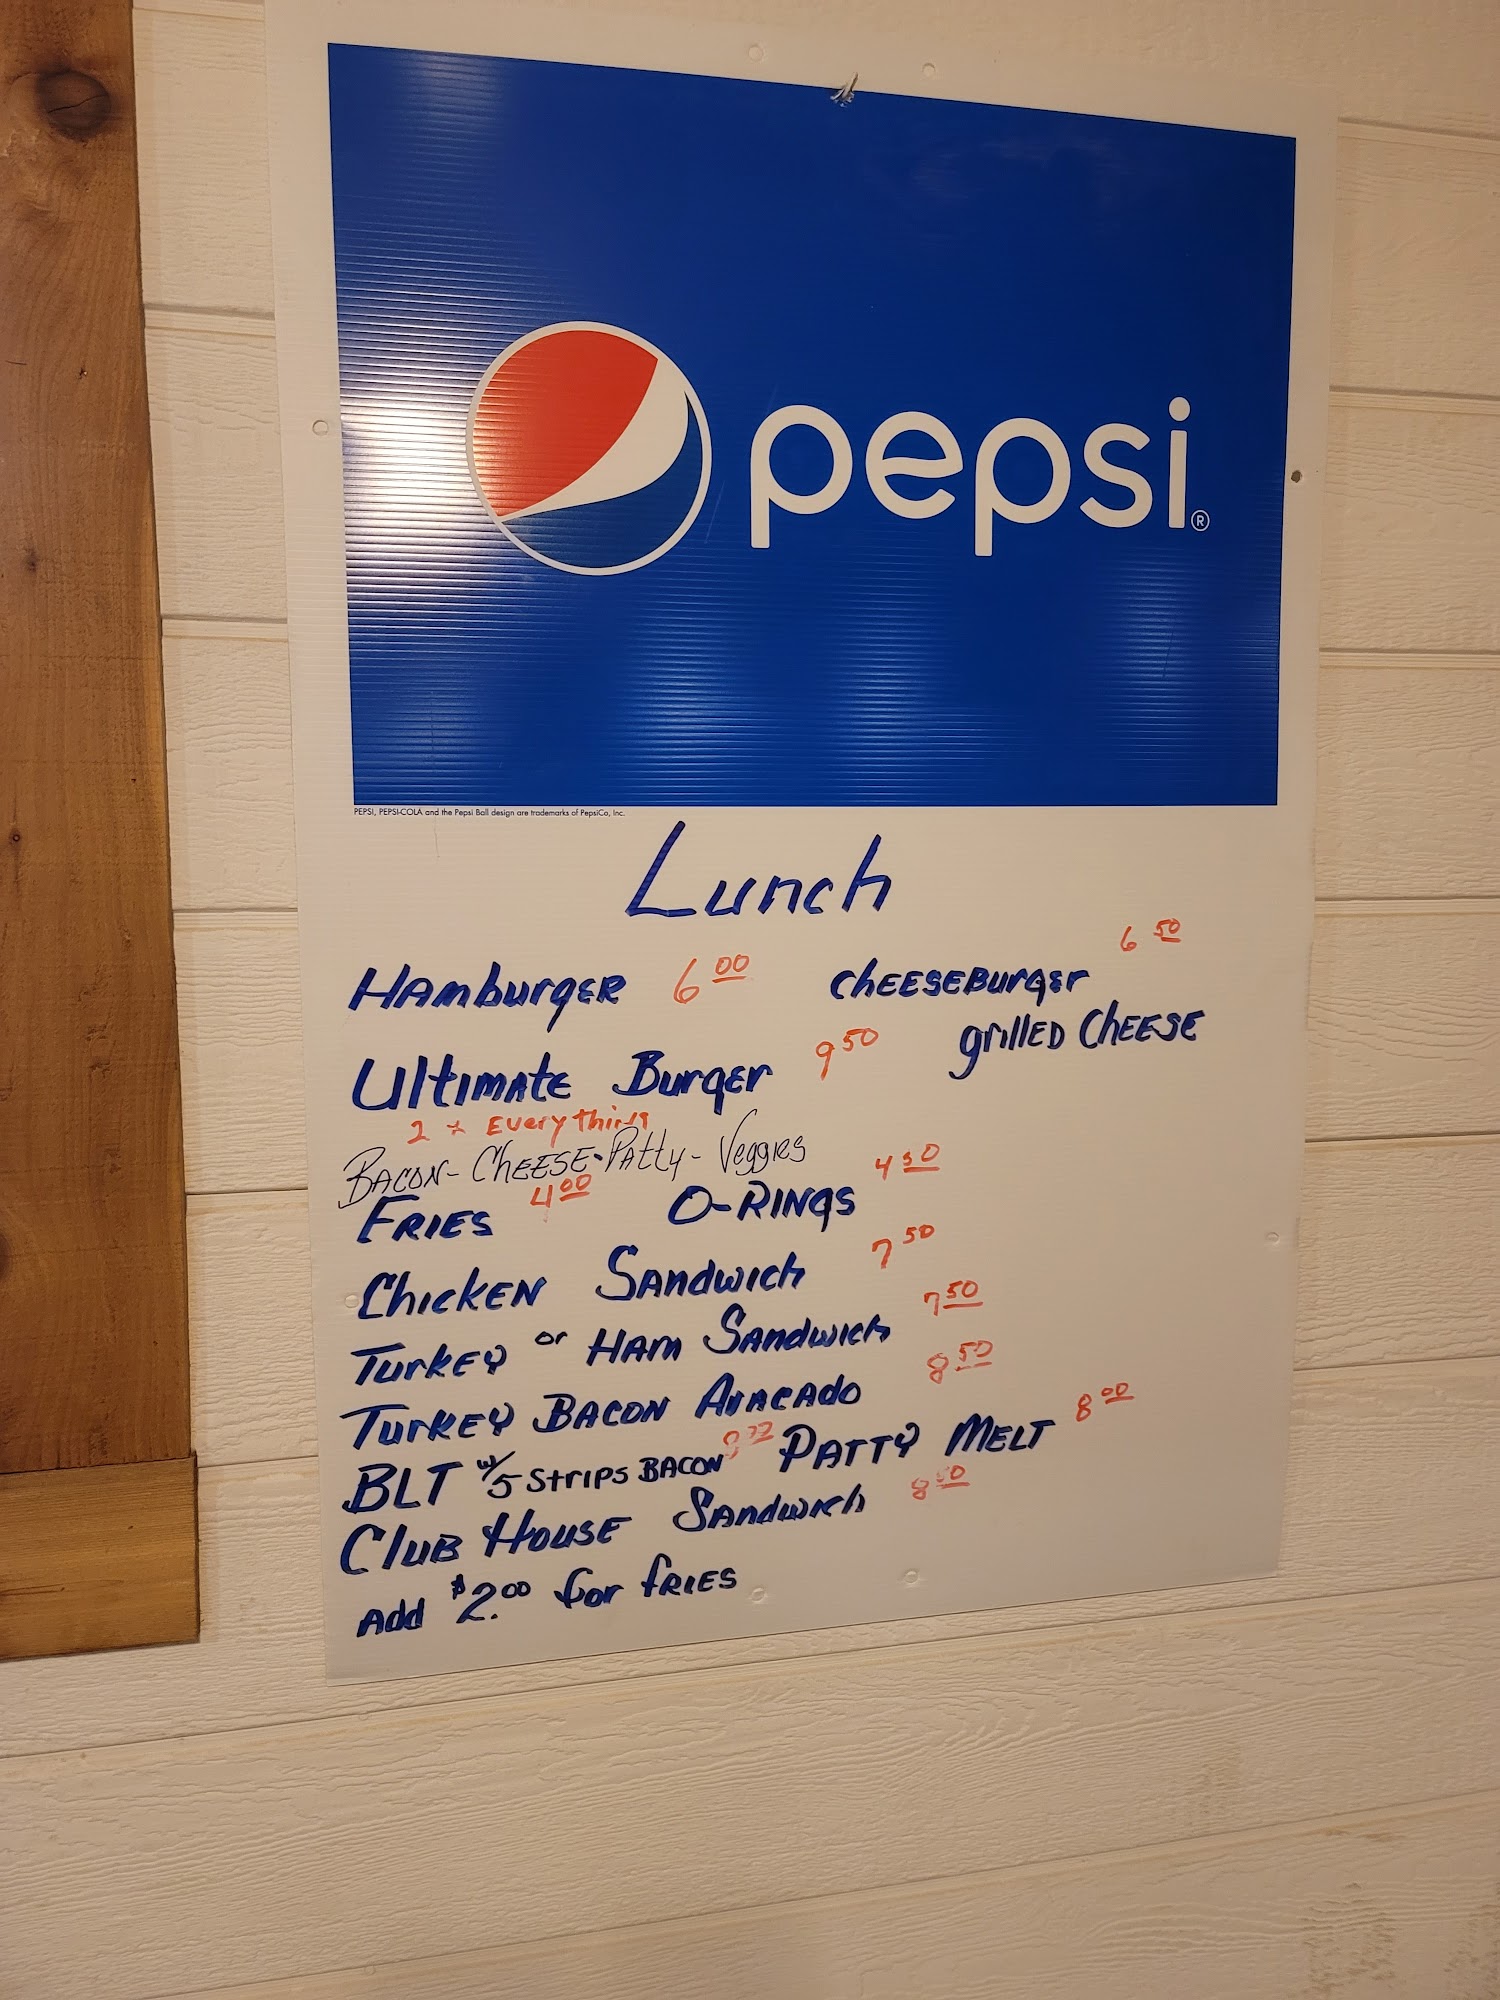 pepsi®
PEPSI, PEPSI-COLA and the Pepsi Ball design are trademarks of PepsiCo, Inc.
Lunch
Hamburger 6 00 Cheeseburger 6 50
Ultimate Burger 9 50 grilled Cheese
2 x Everything
Bacon - Cheese - Patty - Veggies
Fries 4 00 O-Rings 4 50
Chicken Sandwich 7 50
Turkey or Ham Sandwich 7 50
Turkey Bacon Avacado 8 50
BLT w/ 5 Strips Bacon Patty Melt 8 00
Club House Sandwich 8 50
Add $2.00 for fries